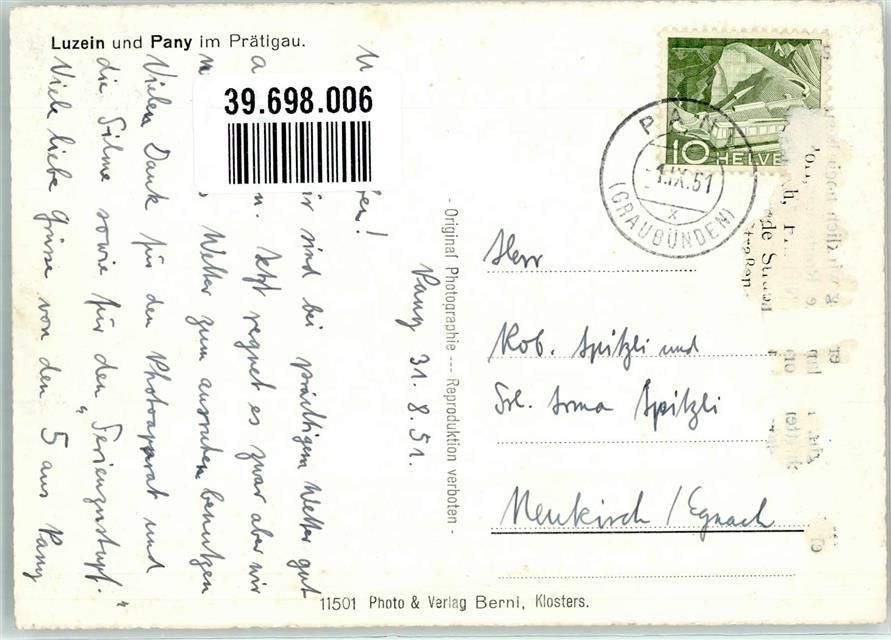 Luzein und Pany im Prätigau.
39.698.006
10 HELVE
PANY
-1.IX.51
X
(GRAUBÜNDEN)
Pany 31. 8. 51.
ben!
wir sind bei prächtigem Wetter gut
a
n. Jetzt regnet es zwar aber wir
Wetter zum ausruhen benutzen
Vielen Dank für den Photoapparat und
die Filme sowie für den „Ferienzustupf."
Viele liebe Grüsse von den 5 aus Pany
- Original Photographie --- Reproduktion verboten -
Herr
Rob. Spitzli und
Frl. Irma Spitzli
Neukirch / Egnach
11501 Photo & Verlag Berni, Klosters.